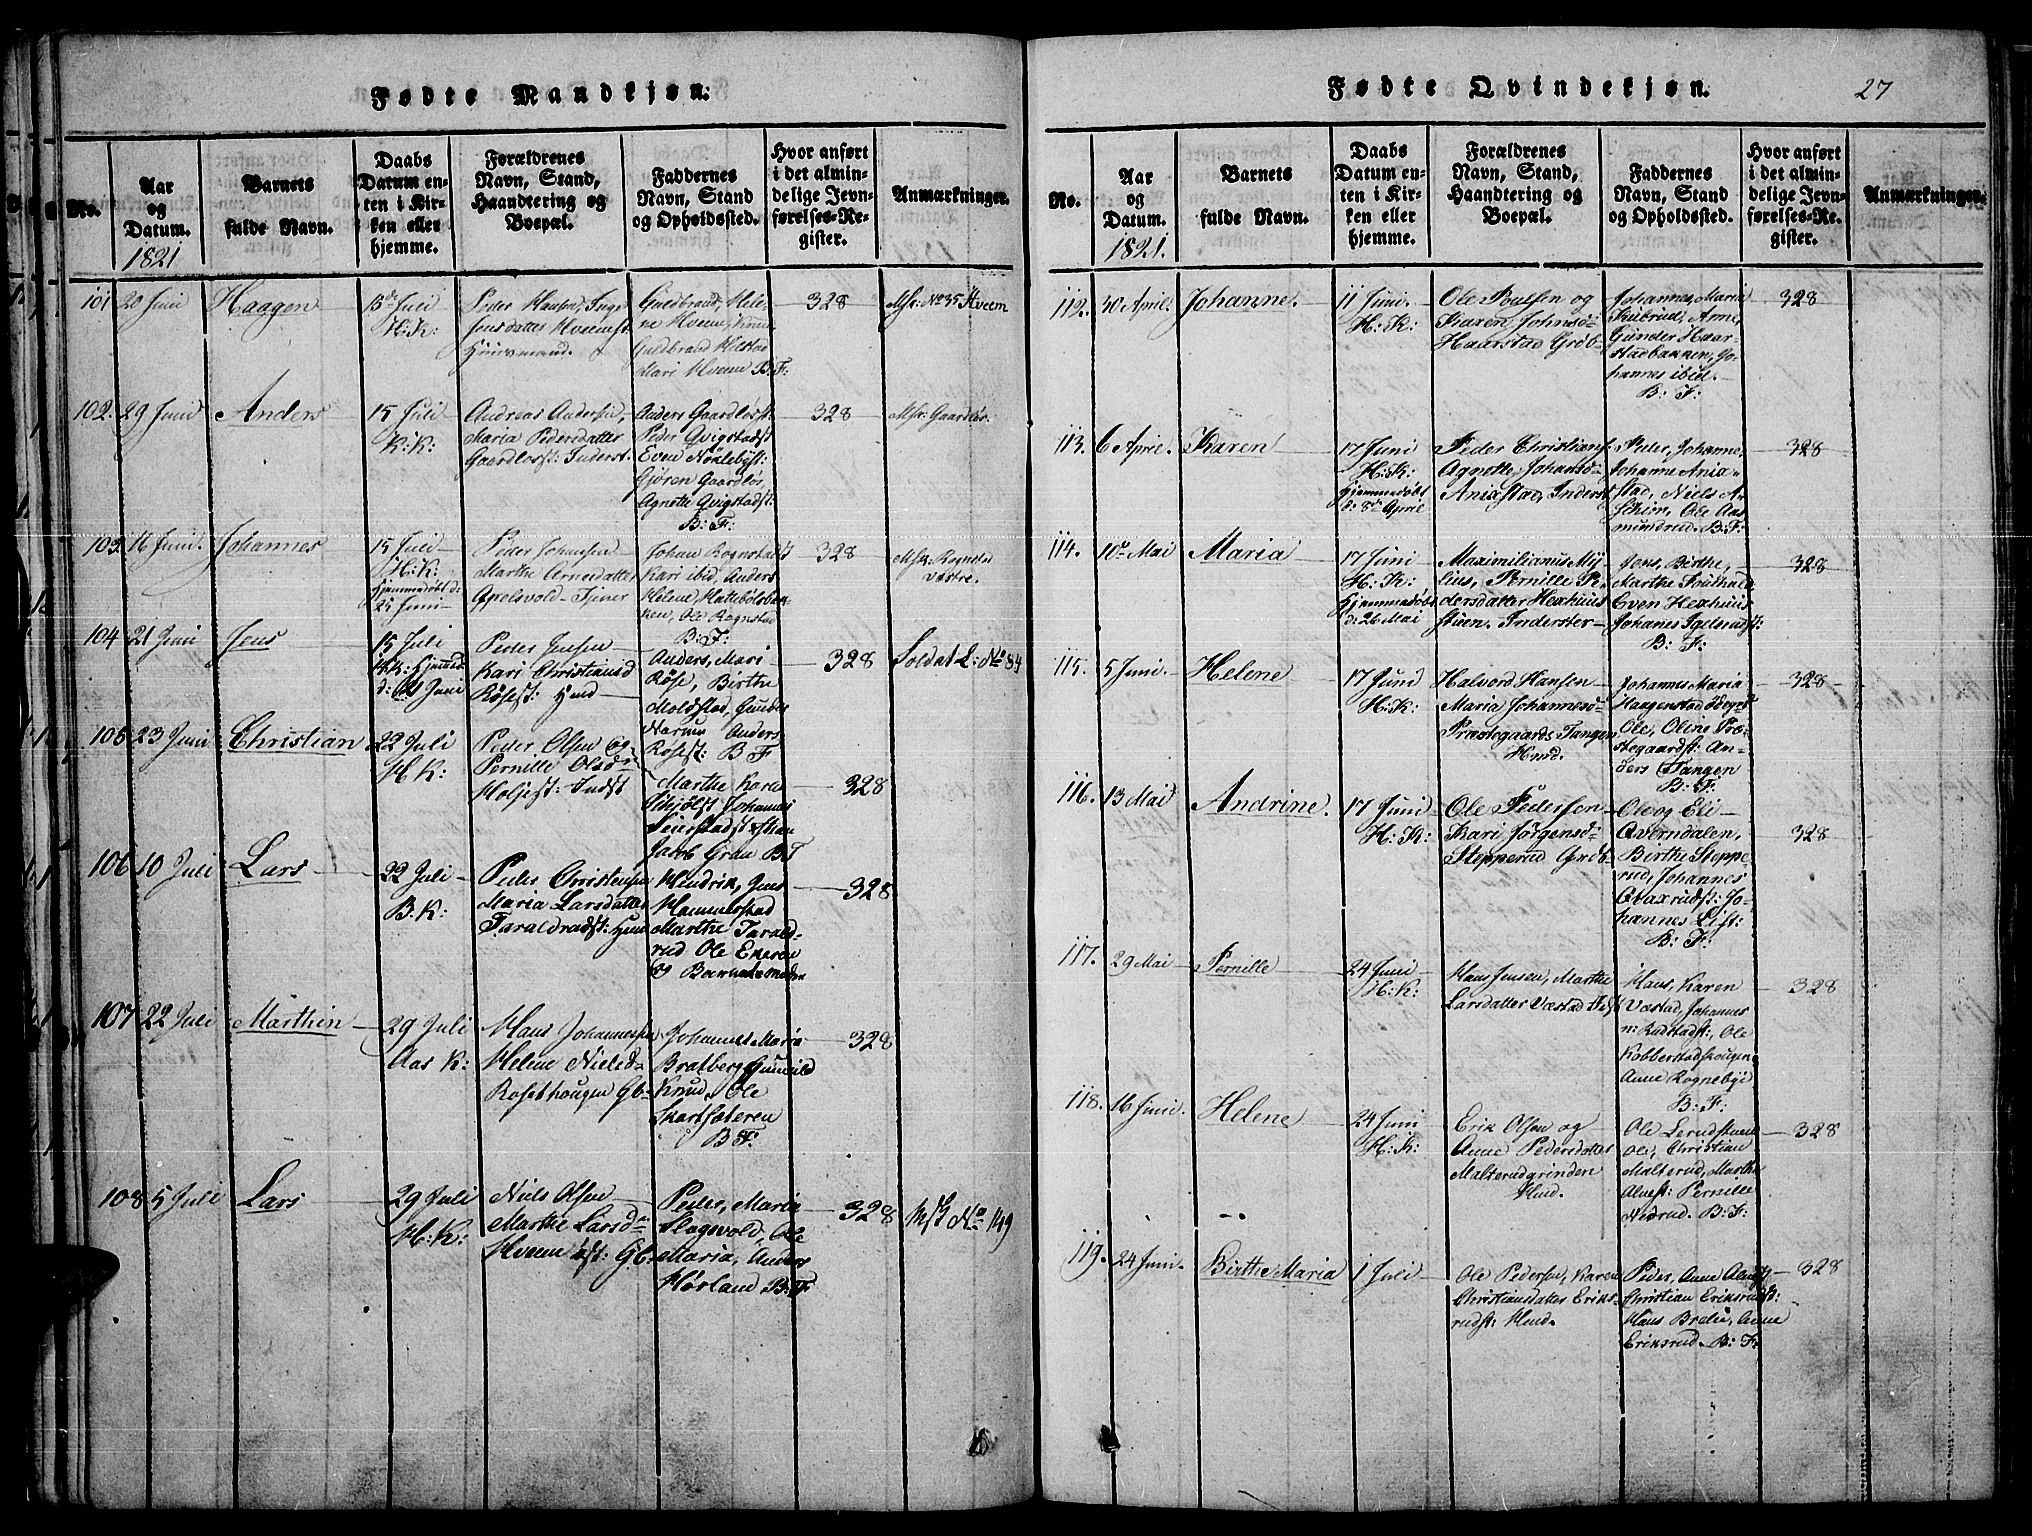 Fødte Mandkjøn:
No.
Aar
og
Datum.
1821
Barnets
fulde Navn.
Daabs
Datum en-
ten i Kir-
ken eller
hjemme.
Forældrenes
Navn, Stand,
Haandtering og
Boepæl.
Faddernes
Navn, Stand
og Opholdssted.
Hvor anført
i det almin-
delige Jevn-
førelses-Re-
gister.
Anmarkninger.
101
20 Juni
Haagen
15de Juli
H: K:
Peder Hansen, Inge
Jensdatter Hveemst
Huusmand.
Guldbrand, Hele-
ne Hveem, Knud
Guldbrand Hilstad
Mari Hveem B: F:
328
Msr: No 35 Hveem
102.
29 Juni
Anders
15 Juli
K: K:
Andreas Andersen,
Maria Pedersdatter
Gaardløsst: Inderst.
Anders Gaardløsst:
Peder Qvigstadst
Even Nøklebyst:
Gjøren Gaardløs
Agnette Qvigstadst:
B: F:
328
Msr: Gaardløs.
103.
16 Juni.
Johannes
15 Juli
H: K:
Hjemmedøbt d:
25 Juni
Peder Johansen
Marthe Arnesdatter
Apelsvold Tjener
Johan Rognstad
Kari ibid, Anders
Helene Hattebolsbak-
ken, Ole Rognstad
B: F:
328
Msr: Rognstad
vestre.
104
21 Juni
Jens
15 Juli
K: K: Hjemmed
d: 21 Juni
Peder Jensen
Kari Christiansd
Røsest: Hmd
Anders, Mari
Røse, Birthe
Moldstad, Gunder
Narum Anders
Røsest: B F
328
Soldat L: No 84
105
23 Juni
Christian
22 Juli
H K:
Peder Olsen og
Pernille Olsdr
Holjest: Indst
Marthe Karen
Johannes
Jacob Grau B F
328
106
10 Juli
Lars
22 Juli
B. K:
Peder Christensen
Maria Larsdatter
Taraldrudst: Hmd
Hendrik, Jens
Hammerstad
Marthe Tarald-
rud Ole Ekeren
og Barnets moder
328
107
22 Juli
Marthin
29 Juli
Aas K:
Hans Johannesen
Helene Nielsd
Rosethougen Gb
Johannes Maria
Bratberg, Gunnild
Knud, Ole
Skartsæteren
B F:
328
108
5 Juli
Lars
29 Juli
H: K:
Niels Olsen
Marthe Larsdr
Hveem øst: Gb.
Peder, Maria
Slagsvold, Ole
Maria, Anders
Hørland B: F
328
Msk No 149
Fødte Qvindekjøn.
27
No.
Aar
og
Datum.
1821.
Barnets
fulde Navn.
Daabs
Datum en-
ten i Kir-
ken eller
hjemme.
Forældrenes
Navn, Stand,
Haandtering og
Boepæl.
Faddernes
Navn, Stand
og Opholdsted.
Hvor anført
i det almin-
delige Jevn-
førelses-Re-
gister.
Anmarkninger.
112.
30 April.
Johanne.
11 Juni.
H: K:
Ole Poulsen og
Karen Johnsd
Haarstad Grdb
Johannes, Maria
Skibrud, Arne,
Gunder Haar-
stadbakken, Jo-
hannes ibid.
B: F:
328
113.
6 April
Karen
17 Juni
H: K:
Hjemmedøbt
d: 8de April
Peder Christians
Agnette Johansd
Anixstad, Inderst
Peder, Johanne,
Johanne Anix-
stad, Niels A-
schim, Ole Aas
mundrud. B: F:
328
114.
10de Mai
Maria
17 Juni
H: K:
Hjemmedøbt
d: 26 Mai
Maximilianus Myj-
lius, Pernille Pe-
dersdatter Hexhuus
stuen. Inderster
Jens, Birthe,
Marthe Frydhald
Even Hexhuus
Johanes Igelsrudst:
B: F:
328
115.
5 Juni.
Helene
17 Juni
H: K:
Halvord Hansen
Maria Johannesd
Præstegaards Tangen
Hmd.
Johannes Maria
Haagenstad
Ole, Oline Præ-
stegaardst: An-
ders Tangen
B: F:
328
116.
13 Mai
Andrine.
17 Juni
H: K:
Ole Pedersen
Kari Jørgensd:
Stepperud Grdb
Ole og Eli
Qverndalen,
Birthe Steppe-
rud, Johannes
Qvaxrudst: Jo-
hannes List:
B: F:
328
117.
29 Mai
Pernille
24 Juni
H: K:
Hans Jensen, Marthe
Larsdatter Væstad Fest
Hans, Karen
Væstad, Johannes
n: Rudstadst: Ole
Kobberstadhougen
Anne Rognebye
B: F:
328
118.
16 Juni.
Helene
24 Juni
H: K:
Erik Olsen og
Anne Pedersdatter
Malterudgrinden
Hmd.
Ole Lerudstuen
Ole, Christian
Malterud, Marthe
Alvest: Pernille
Nedrud. B: F:
328
119.
24 Juni.
Birthe Maria
1 Juli
Ole Pedersen, Karen
Christiansdatter Eriks-
rudst: Hmd.
Peder, Anne
Christian Eriksrudst:
Hans Bralie, Anne
Eriksrud. B: F:
328